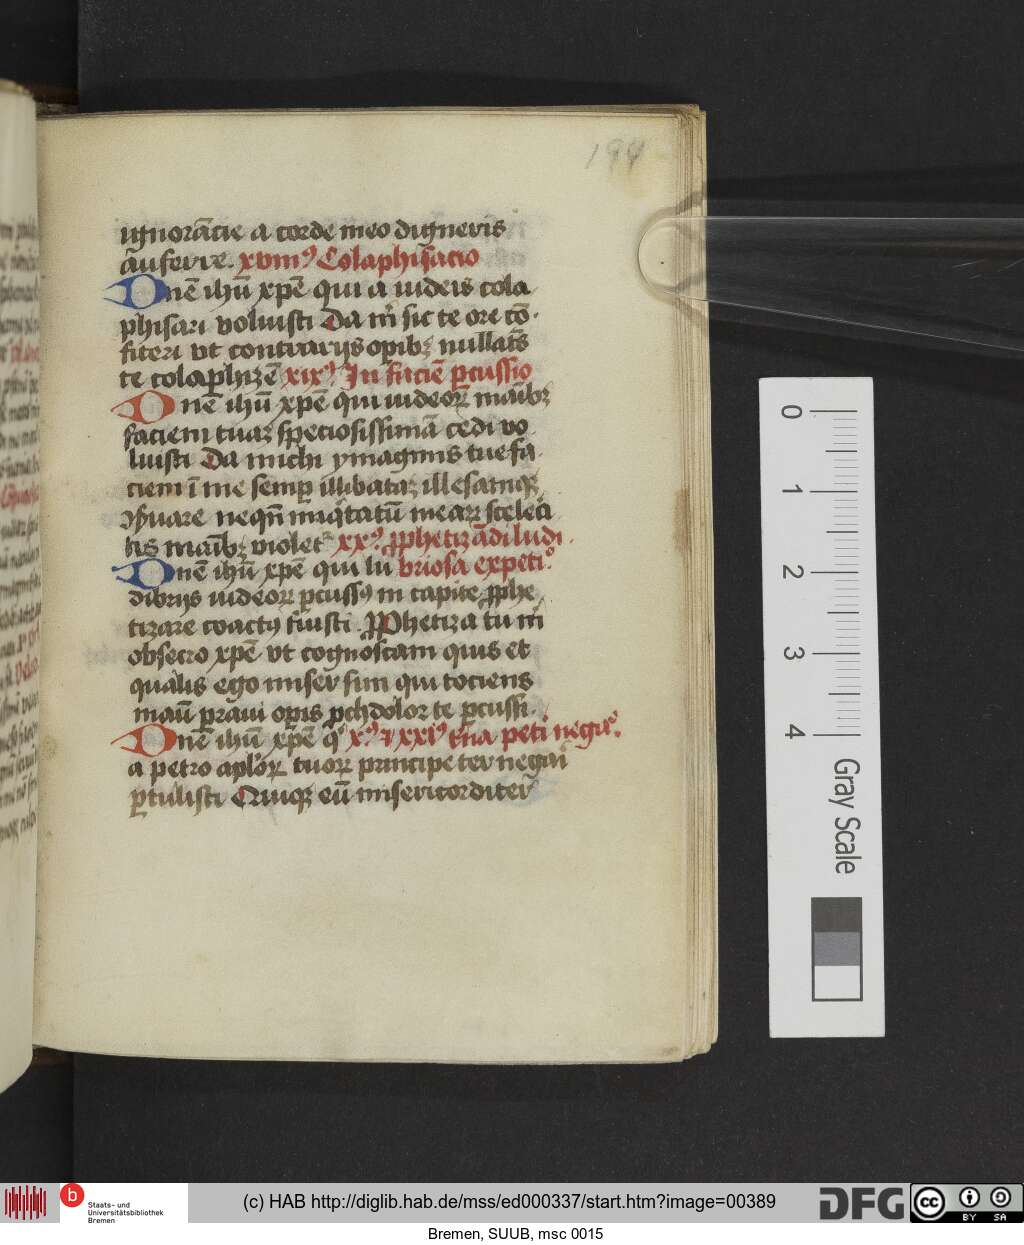 194
ignorācie a corde meo digneris
auferre. xviii⁹ Colaphisatio
Dnē ihū xpē qui a iudeis cola
phisari voluisti Da m̄ sic te ore cō
fiteri vt contrariis opibꝫ nullatꝰ
te colaphizē xix⁹ In faciē ꝑcussio
Dnē ihū xpē qui iudeoꝝ maībꝫ
faciem tuaꝫ speciosissimā cedi vo
luisti Da michi ymaginis tue fa
ciem ī me semꝑ illibataꝫ illesamqꝫ
ꝯseruare neqn̄ iniqͥtatū meaꝝ sceleta
tis maībꝫ violet xx⁹ ꝓphetizādi ludi
Dnē ihū xpē qui lu briosa expeti⁰
dibriis iudeoꝝ ꝑcuss⁹ in capite ꝓphe
tizare coact⁹ fuisti. Pꝓhetiza tu m̄
obsecro xpē vt cognoscam quis et
qualis ego miser sim qui tociens
manū praui opis ꝓch dolor te ꝑcussi.
Dnē ihū xpē qͥ x⁹ ⁊ xxi⁹ t̓na petͥ negaͦ.
a petro aplōꝝ tuoꝝ principe ter negari
ꝑtulisti Quiqꝫ eū misericorditer
0
1
2
3
4
Gray Scale
b
Staats- und
Universitätsbibliothek
Bremen
(c) HAB http://diglib.hab.de/mss/ed000337/start.htm?image=00389
DFG
cc
BY SA
Bremen, SUUB, msc 0015